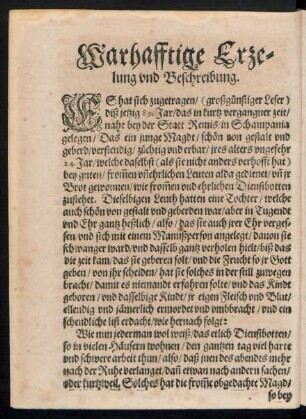 Warhafftige Erze-
lung vnd Beschreibung.
ES hat sich zugetragen/ (großgünstiger Leser)
diß jetzig 89. Jar/ das in kurtz vergangner zeit/
naht bey der Statt Remis/ in Schampania
gelegen/ Das ein junge Magdt/ schön von gestalt vnd
geberd/ verstendig/ züchtig vnd erbar/ jres alters vngefehr
24. Jar/ welche daselbst (als sie nicht anders verhofft hat)
bey guten/ from̃en vñ ehrlichen Leuten alda gedienet/ vñ jr
Brot gewonnen/ wie from̃en vnd ehrlichen Dienstbotten
zustehet. Dieselbigen Leuth hatten eine Tochter/ welche
auch schön von gestalt vnd geberden war/ aber in Tugendt
vnd Ehr gantz heßlich/ also/ das sie auch jrer Ehr vergeß-
sen/ vnd sich mit einem Mannßperson angelegt/ danon sie
schwanger ward/ vnd dasselb gantz verholen hielt/ biß das
die zeit kam/ das sie geberen solt/ vnd die Frucht so jr Gott
geben/ von jhr scheiden/ hat sie solches in der still zuwegen
bracht/ damit es niemandt erfahren solte/ vnd das Kindt
geboren/ vnd dasselbige Kindt/ jr eigen Fleisch vnd Blut/
ellendig vnd jämerlich ermordet vnd vmbbracht/ vnd ein
schendliche list erdacht/ wie hernach folgt.
Wie nun jederman wol weiß/ das etlich Dienstbotten/
so in vielen Häusern wohnen/ den gantzen tag viel harte
vnd schwere arbeit thun/ also/ daß jnen des abendts mehr
nach der Ruhe verlanget/ dañ etwan nach andern sachen/
oder kurtzweil. Solches hat die from̃e obgedachte Magd/
so bey